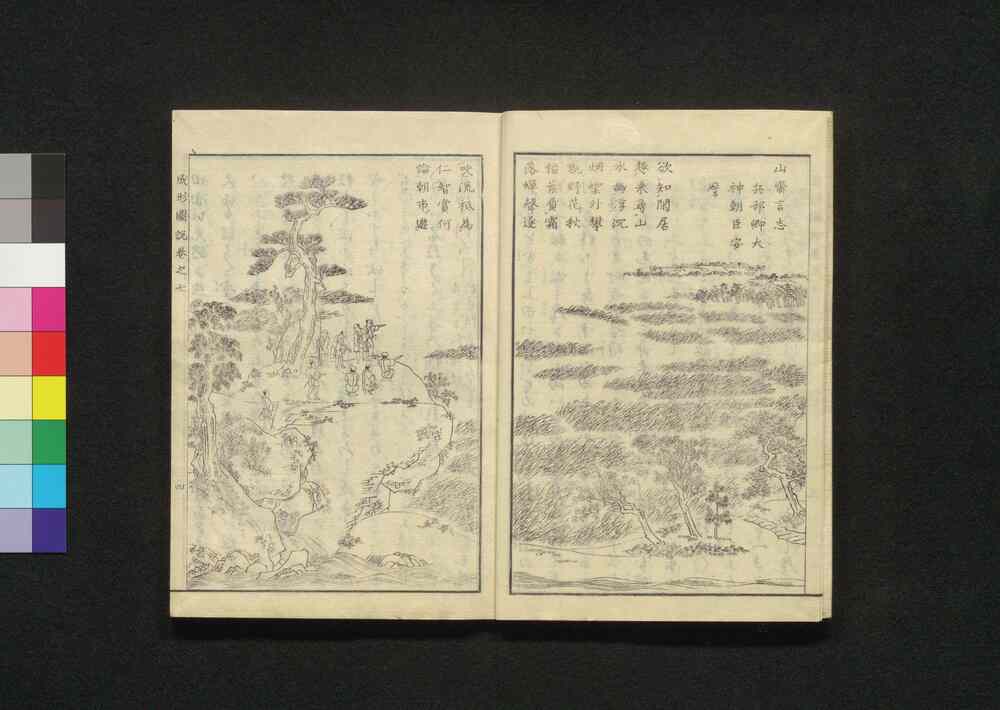 山齋言志
兵部卿大
神朝臣安
麿
欲知閒居
趣来尋山
水幽浮沉
烟雲外攀
翫野花秋
稻葉負霜
落蟬聲逐
吹流祗為
仁智賞何
論朝市遊
成形圖說卷之七
四